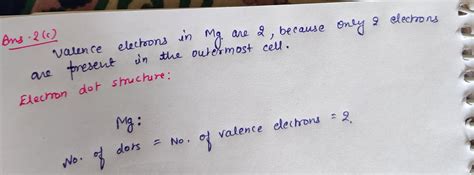 Ans. 2(c)
Valence electrons in Mg are 2, because only 2 electrons
are present in the outermost cell.
Electron dot structure:
Mg:
No. of dots = No. of valence electrons = 2.